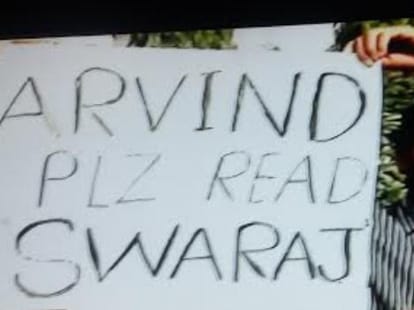 ARVIND
PLZ READ
SWARAJ